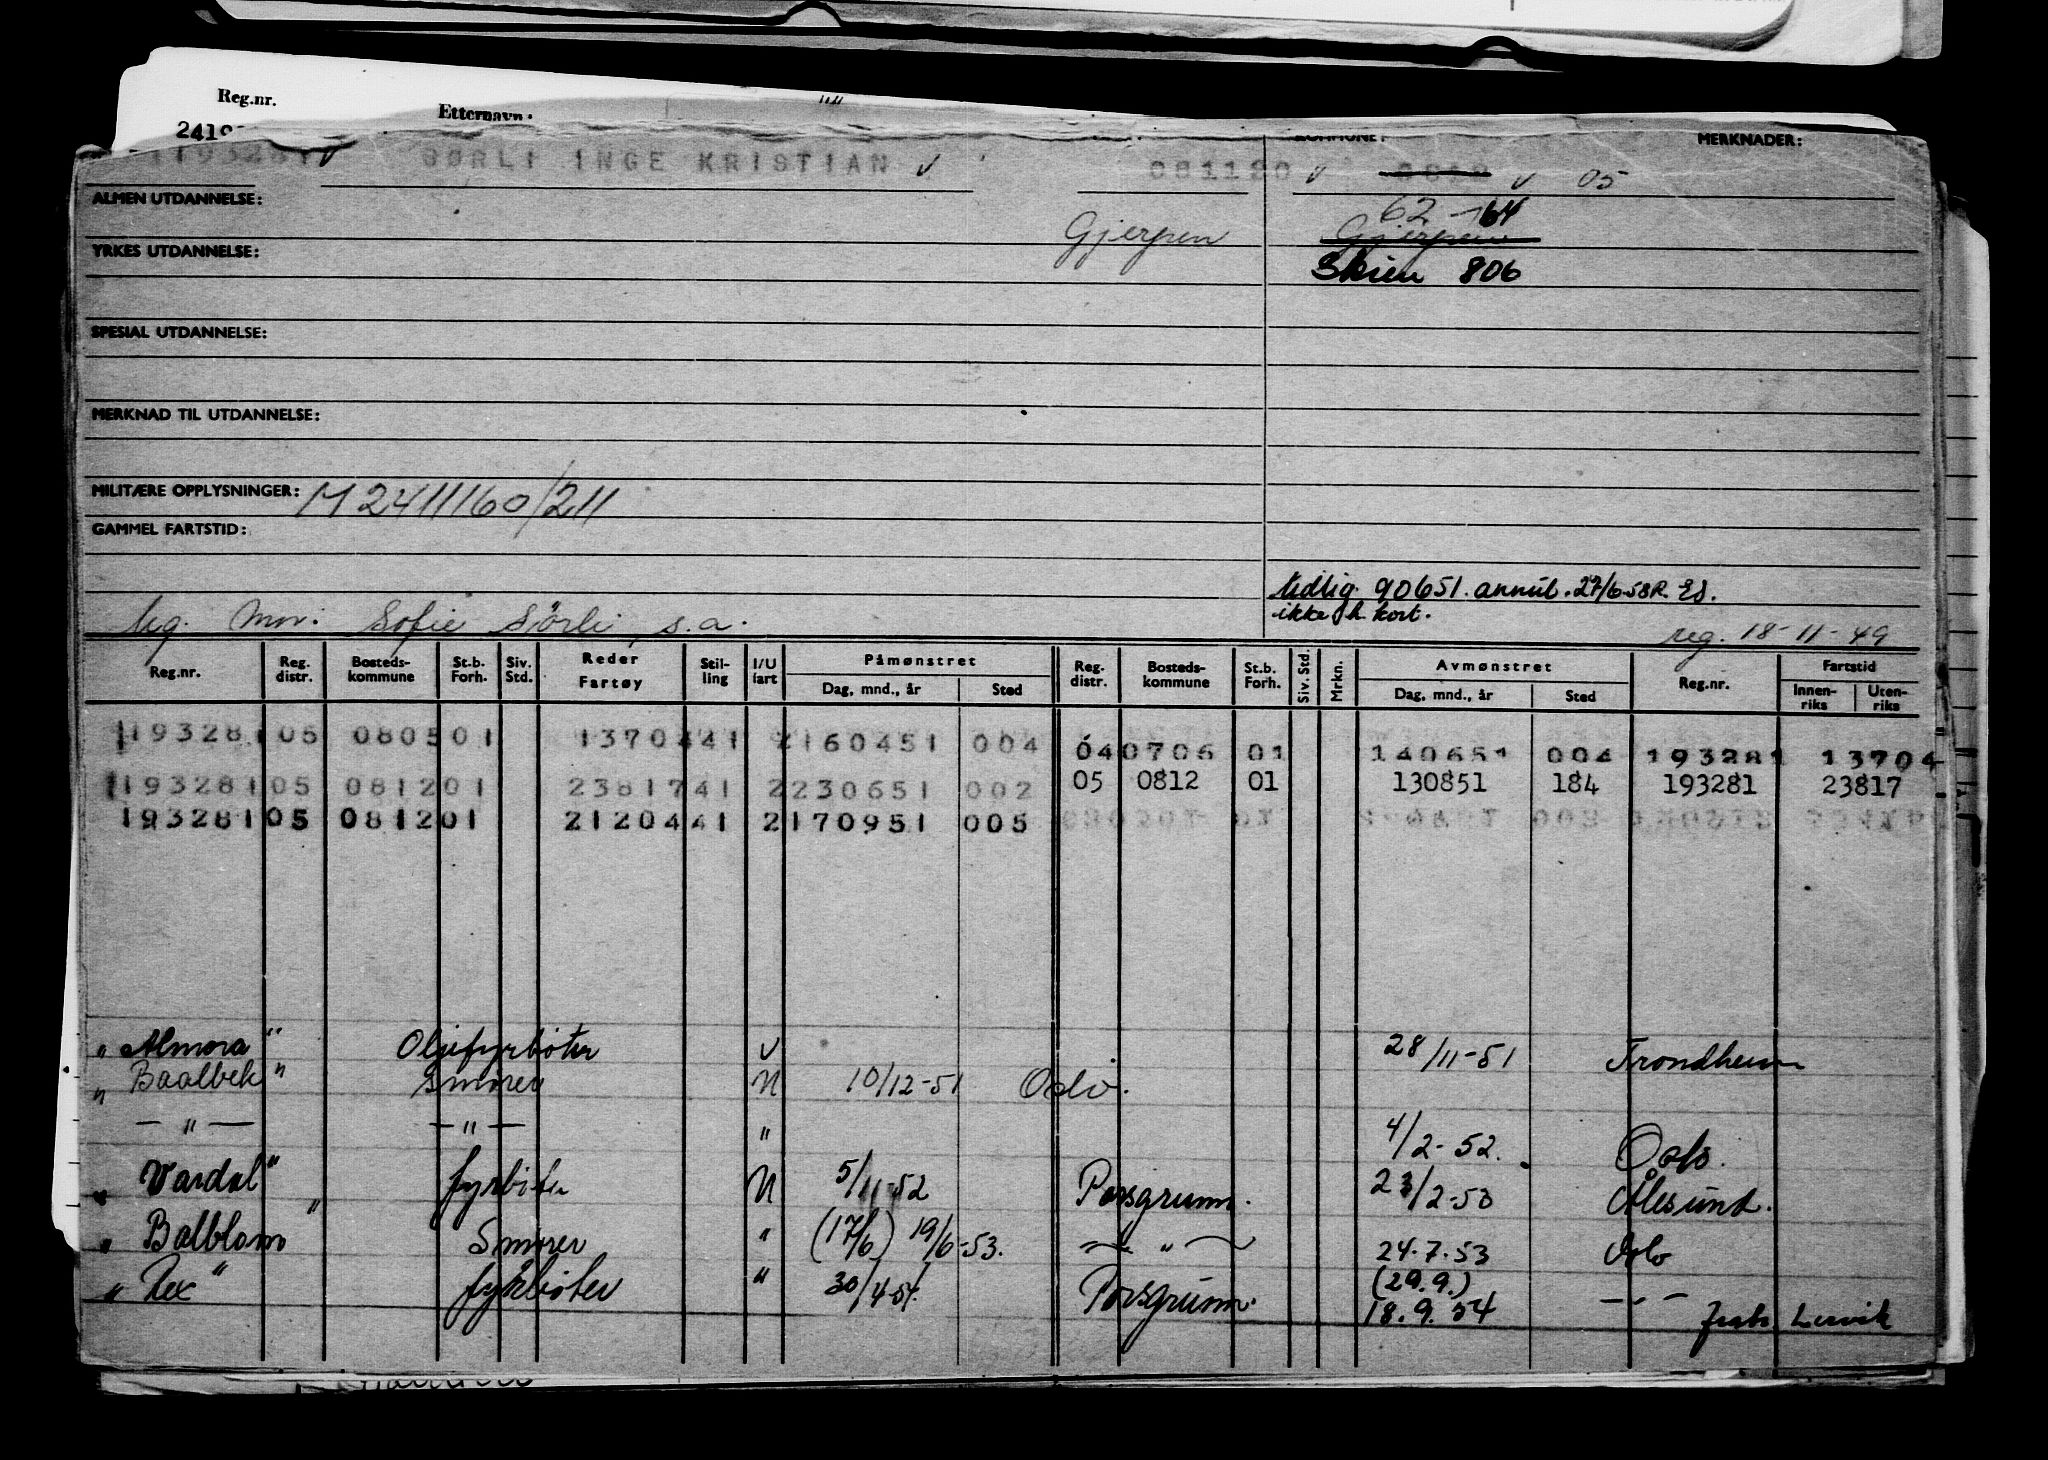 Reg.nr.
Etternavn:
MERKNADER:
193281 SØRLI INGE KRISTIAN 081120 0812 05
ALMEN UTDANNELSE:
62-64
Gjerpen Gjerpen
YRKES UTDANNELSE:
Skien 806
SPESIAL UTDANNELSE:
MERKNAD TIL UTDANNELSE:
MILITÆRE OPPLYSNINGER: M2411160/211
GAMMEL FARTSTID:
Utdlig. 90651. annul. 27/6-58R. ES.
ikke h. kort.
Mor: Sofie Sørli, s.a. reg. 18-11-49
Reg.nr. Reg. distr. Bosteds-kommune St.b. Forh. Siv. Std. Reder Fartøy Stil-ling I/U fart Påmønstret Dag, mnd., år Sted Reg. distr. Bosteds-kommune St.b. Forh. Siv. Std. Mrkn. Avmønstret Dag, mnd., år Sted Reg.nr. Fartstid Innen-riks Uten-riks
193281 05 0805 01 13704 41 2 160451 004 04 0706 01 140651 004 193281 13704
193281 05 0812 01 23817 41 2 230651 002 05 0812 01 130851 184 193281 23817
193281 05 0812 01 21204 41 2 170951 005
" Almora " Oljefyrbøter U 28/11-51 Trondheim
" Baalbek " Smører U 10/12-51 Oslo.
— " — — " — " 4/2-52. Oslo.
" Vardal " fyrbøter U 5/11-52 Porsgrunn. 23/2-53 Ålesund.
" Balblom " Smører " (17/6) 19/6-53. — " — 24.7.53 Oslo
" Rex " fyrbøter " 30/4-54. Porsgrunn. (29.9.) 18.9.54 — " — Lervik